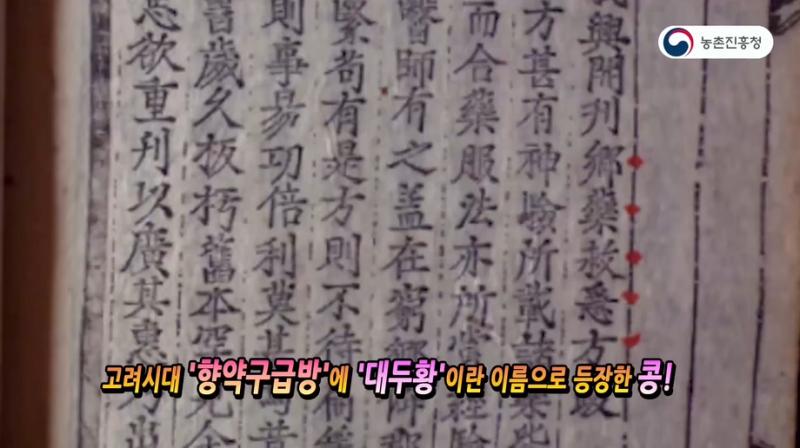 농촌진흥청
興開刊鄕藥救急方
方甚有神驗所載
而合藥服法亦所
醫師有之盖在窮
緊尙有是方則不待
則事易功倍利莫甚
歲久板朽舊本罕見
欲重刊以廣其
고려시대 '향약구급방'에 '대두황'이란 이름으로 등장한 콩!